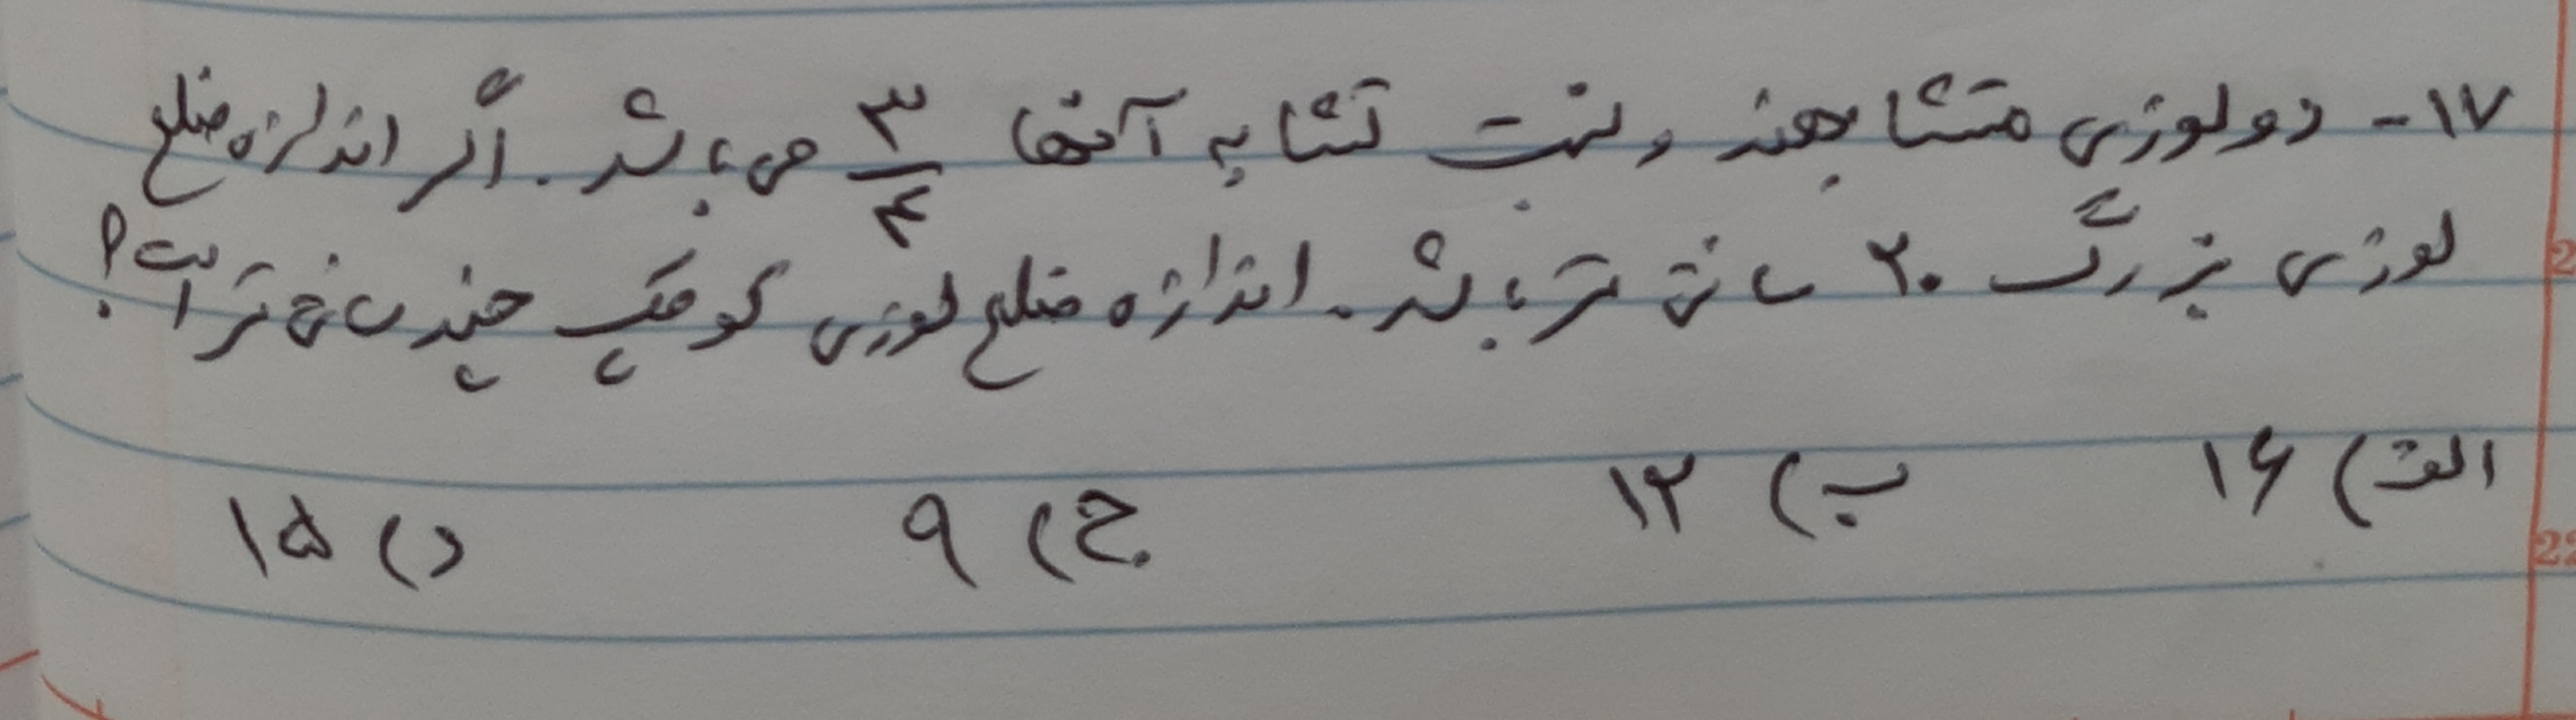 ۱۷- دو لوزی متشابهند و نسبت تشابه آنها ۳/۴ می باشد. اگر اندازه ضلع
لوزی بزرگ ۲۰ سانتی متر باشد. اندازه ضلع لوزی کوچک چند سانتی متر است؟
الف) ۱۶ ب) ۱۲ ج) ۹ د) ۱۵
2
22